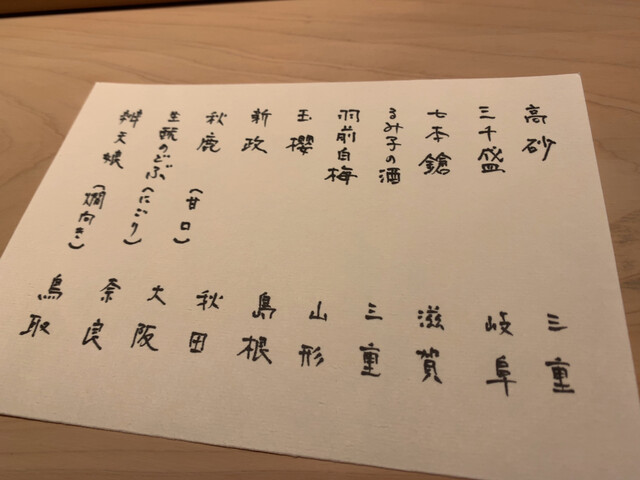 高砂 三重
三千盛 岐阜
七本鎗 滋賀
るみ子の酒 三重
羽前白梅 山形
玉櫻 島根
新政 秋田
秋鹿 (甘口) 大阪
生酛のどぶ (にごり) 奈良
辨天娘 (燗向き) 鳥取